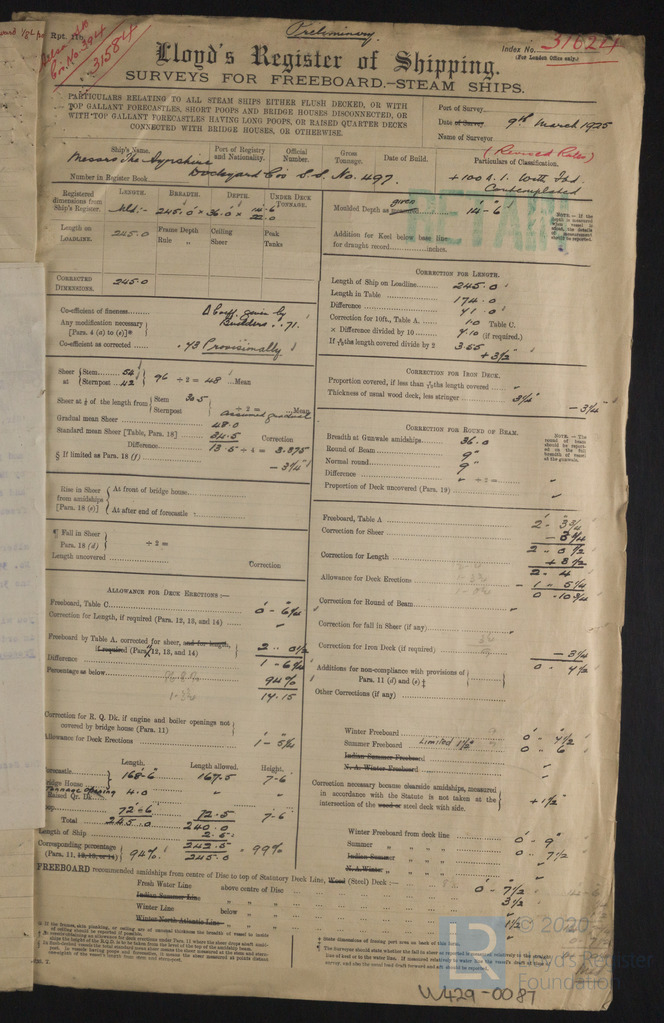 Preliminary
Rpt. 11b.
31584
Index No. 31624
(For London Office only.)
Lloyd's Register of Shipping.
SURVEYS FOR FREEBOARD.—STEAM SHIPS.
PARTICULARS RELATING TO ALL STEAM SHIPS EITHER FLUSH DECKED, OR WITH
TOP GALLANT FORECASTLES, SHORT POOPS AND BRIDGE HOUSES DISCONNECTED, OR
WITH TOP GALLANT FORECASTLES HAVING LONG POOPS, OR RAISED QUARTER DECKS
CONNECTED WITH BRIDGE HOUSES, OR OTHERWISE.
Port of Survey
Date of Survey 9th March 1925
Name of Surveyor
(Revised Rules)
Ship's Name. Port of Registry and Nationality. Official Number. Gross Tonnage. Date of Build. Particulars of Classification.
Messrs The Ayrshire Dockyard Co's S.S. No. 497.
+100 A.1. With Fbd. Contemplated
Number in Register Book
RETAIN
Registered dimensions from Ship's Register. LENGTH. BREADTH. DEPTH. UNDER DECK TONNAGE.
Mld:- 245.0 × 36.0 × 14-6 22.0
Length on LOADLINE. 245.0 Frame Depth Rule " Ceiling Sheer Peak Tanks
CORRECTED DIMENSIONS. 245.0
Moulded Depth as given 14'-6"
Addition for Keel below base line for draught record inches.
Co-efficient of fineness Coeff. given by Builders .71.
Any modification necessary [Para. 4 (a) to (e)]*
Co-efficient as corrected .73 Provisionally
CORRECTION FOR LENGTH.
Length of Ship on Loadline 245.0
Length in Table 174.0
Difference 71.0
Correction for 10ft., Table A. 1.0 Table C.
× Difference divided by 10 7.10 (if required.)
If 6/10ths length covered divide by 2 3.55
+ 3½"
Sheer at Stem 54 Sternpost 42 96 ÷ 2 = 48 Mean
Sheer at ⅛ of the length from Stem 30.5 Sternpost ÷ 2 = Mean
Gradual mean Sheer 48.0 assumed gradual
Standard mean Sheer [Table, Para. 18] 34.5 Correction
Difference 13.5 ÷ 4 = 3.375
§ If limited as Para. 18 (f) - 3¼"
CORRECTION FOR IRON DECK.
Proportion covered, if less than 7/10ths length covered "
Thickness of usual wood deck, less stringer 3¼" - 3¼"
CORRECTION FOR ROUND OF BEAM.
Breadth at Gunwale amidships 36.0
Round of Beam 9"
Normal round 9"
Difference " ÷ 2 = "
Proportion of Deck uncovered (Para. 19) "
Rise in Sheer from amidships [Para. 18 (e)] At front of bridge house
At after end of forecastle
¶ Fall in Sheer Para. 18 (d) ÷ 2 =
Length uncovered Correction
ALLOWANCE FOR DECK ERECTIONS:—
Freeboard, Table C 0 - 6¼
Correction for Length, if required (Para. 12, 13, and 14)
Freeboard by Table A. corrected for sheer, and for length, if required (Para. 12, 13, and 14) 2 - 0½
Difference 1 - 6¼
Percentage as below 94%
17.15
Correction for R. Q. Dk. if engine and boiler openings not covered by bridge house (Para. 11)
Allowance for Deck Erections 1 - 5¼
Freeboard, Table A 2 - 3¾
Correction for Sheer - 3¼
2 - 0½
Correction for Length + 3½
2 - 4
Allowance for Deck Erections - 1 - 5¼
0 - 10¾
Correction for Round of Beam "
Correction for fall in Sheer (if any)
Correction for Iron Deck (if required) - 3¼
0 - 7½
Additions for non-compliance with provisions of Para. 11 (d) and (e) ‡
Other Corrections (if any)
Length. Length allowed. Height.
Forecastle Bridge House 168-6 167.5 7-6
Tonnage opening 4.0 "
Raised Qr. Dk.
Poop 72-6 72.5 7-6
Total 245.0 240.0
Length of Ship 2.5
Corresponding percentage (Para. 11, 12, 13, or 14) 94% 242.5 245.0 = 99%
Winter Freeboard 0 - 7½
Summer Freeboard Limited 1½" 0 - 6
Indian Summer Freeboard "
N. A. Winter Freeboard "
Correction necessary because clearside amidships, measured in accordance with the Statute is not taken at the intersection of the wood or steel deck with side. + 1½"
Winter Freeboard from deck line 0 - 9"
Summer " " " 0 - 7½
Indian Summer " " "
N. A. Winter " " "
FREEBOARD recommended amidships from centre of Disc to top of Statutory Deck Line, Wood (Steel) Deck:— 0 - 7½
Fresh Water Line above centre of Disc 3½
Indian Summer Line " "
Winter Line below " 1½
Winter North Atlantic Line " "
© 2020
Lloyd's Register
Foundation
LR
W429-0087